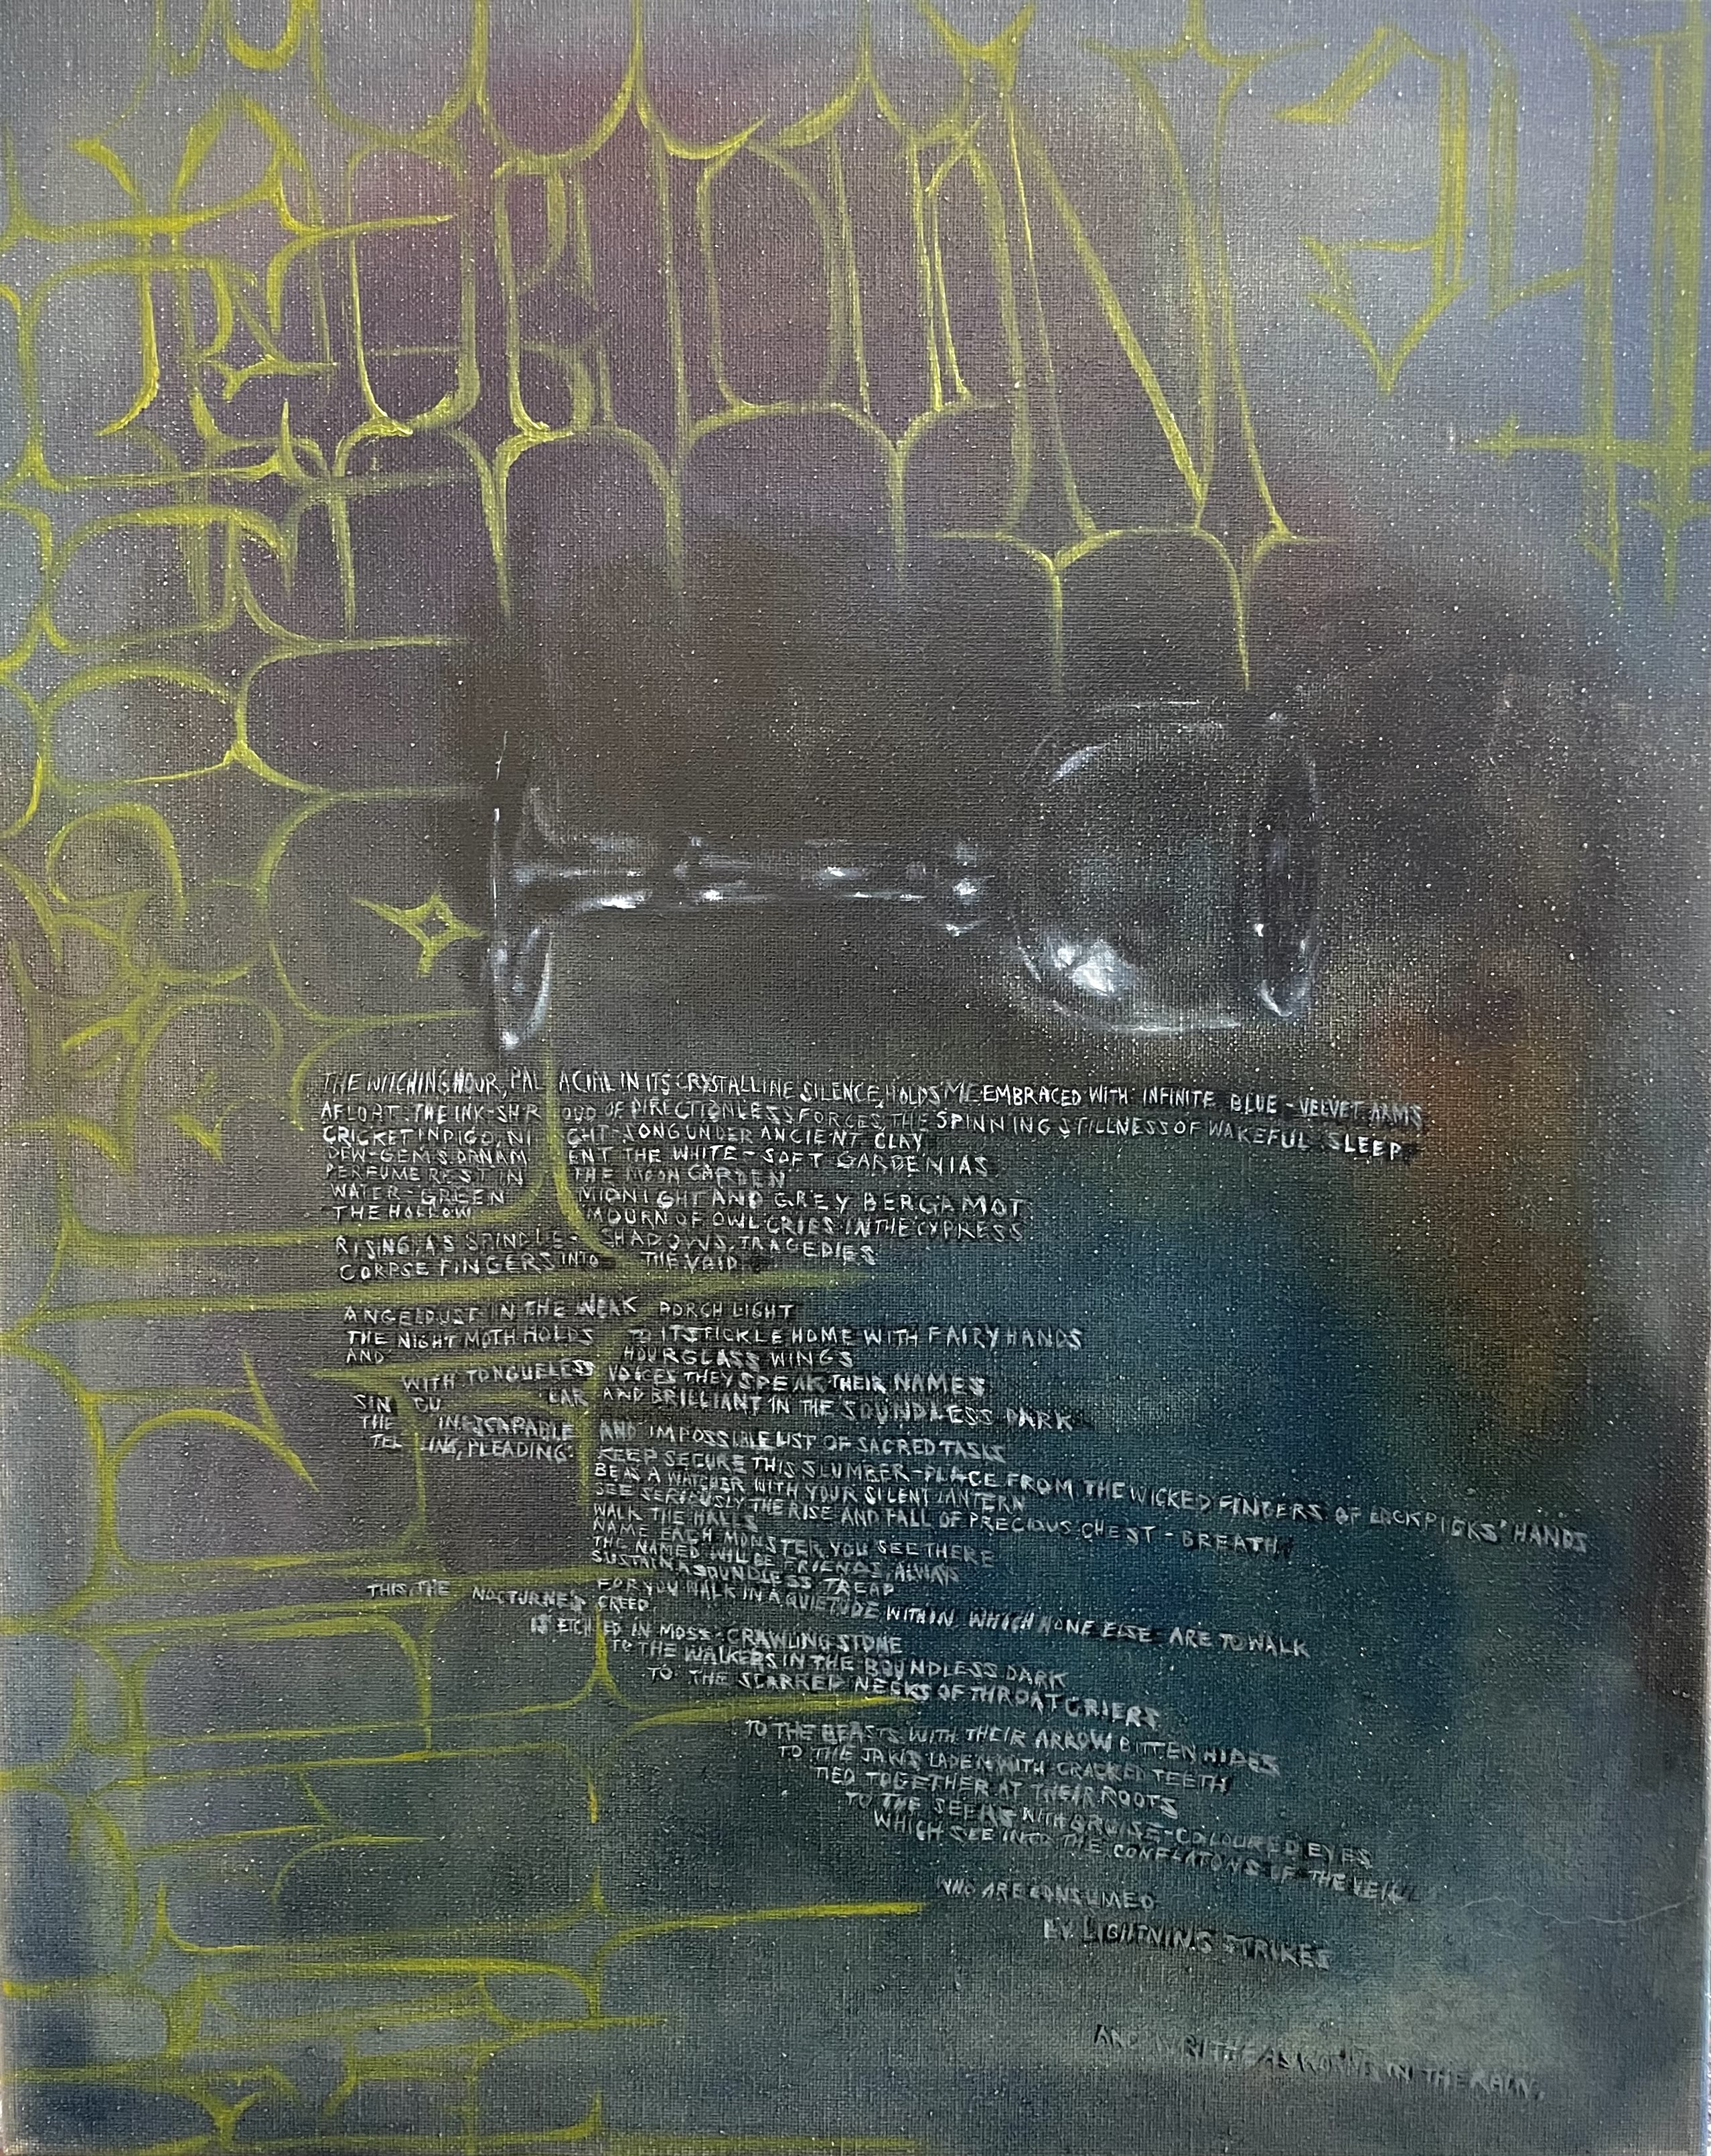 THE WITCHING HOUR, PALACIAL IN ITS CRYSTALLINE SILENCE, HOLDS ME EMBRACED WITH INFINITE BLUE-VELVET ARMS
AFLOAT THE INK-SHROUD OF DIRECTIONLESS FORCES, THE SPINNING STILLNESS OF WAKEFUL SLEEP
CRICKET INDIGO, NIGHT-SONG UNDER ANCIENT CLAY
DEW-GEMS ORNAMENT THE WHITE-SOFT GARDENIAS
PERFUME REST IN THE MOON GARDEN
WATER-GREEN MIDNIGHT AND GREY BERGAMOT
THE HOLLOW MOURN OF OWL CRIES IN THE CYPRESS
RISING, AS SPINDLE-SHADOWS, TRAGEDIES
CORPSE FINGERS INTO THE VOID
ANGELDUST IN THE WEAK PORCH LIGHT
THE NIGHT MOTH HOLDS TO ITS FICKLE HOME WITH FAIRY HANDS
AND HOURGLASS WINGS
WITH TONGUELESS VOICES THEY SPEAK THEIR NAMES
SIN GU LAR AND BRILLIANT IN THE SOUNDLESS DARK
THE INESCAPABLE AND IMPOSSIBLE LIST OF SACRED TASKS
TEL LING, PLEADING:
KEEP SECURE THIS SLUMBER-PLACE FROM THE WICKED FINGERS OF LOCKPICKS' HANDS
BE AS A WATCHER WITH YOUR SILENT LANTERN
SEE SERIOUSLY THE RISE AND FALL OF PRECIOUS CHEST-BREATH
WALK THE HALLS
NAME EACH MONSTER YOU SEE THERE
THE NAMED WILL BE FRIENDS, ALWAYS
SUSTAIN A SOUNDLESS TREAD
FOR YOU WALK IN A QUIETUDE WITHIN WHICH NONE ELSE ARE TO WALK
THIS, THE NOCTURNE'S CREED
IS ETCHED IN MOSS-CRAWLING STONE
TO THE WALKERS IN THE BOUNDLESS DARK
TO THE SCARRED NECKS OF THROAT CRIERS
TO THE BEASTS WITH THEIR ARROW BITTEN HIDES
TO THE JAWS LADEN WITH CRACKED TEETH
TIED TOGETHER AT THEIR ROOTS
TO THE SEERS WITH BRUISE-COLOURED EYES
WHICH SEE INTO THE CONFLATONS OF THE VEIL
WHO ARE CONSUMED
BY LIGHTNING STRIKES
AND WRITHE AS WORMS IN THE RAIN.